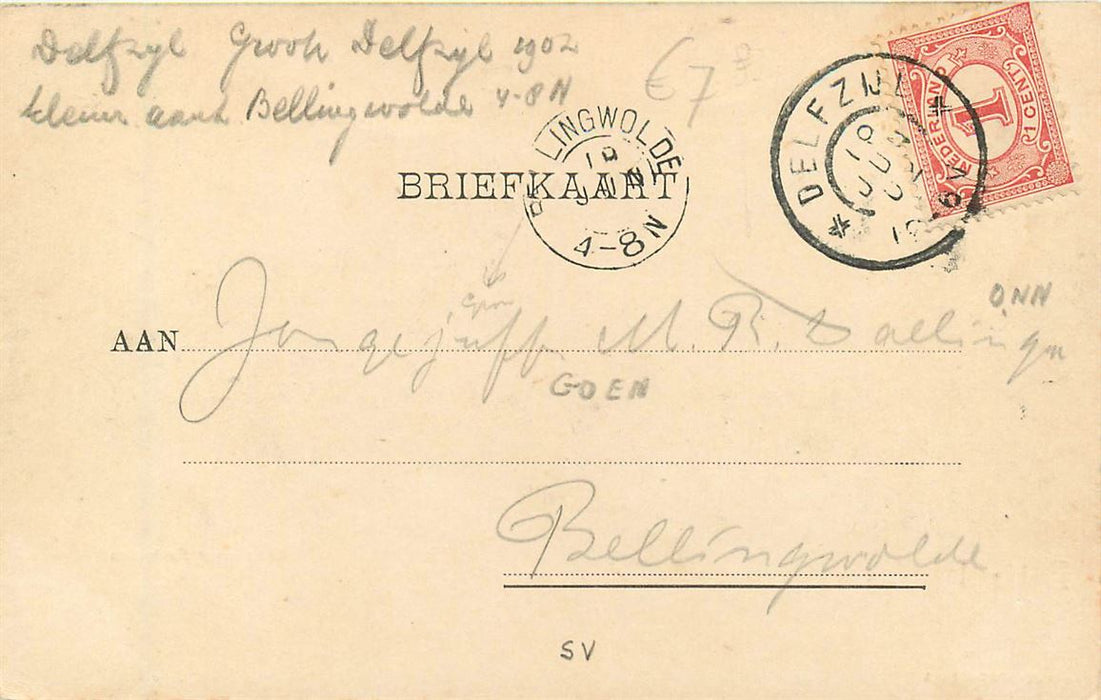 Delfzyl Groot Delfzyl 1902
klein aank Bellingwolde 4-8N
€7
LINGWOLDE
19 JAN
4-8N
DELFZIJL
NEDERLAND
1
1 CENT
BRIEFKAART
AAN Jongejuffr. M. R. Dallinga
ONN
GOEN
Bellingwolde
SV